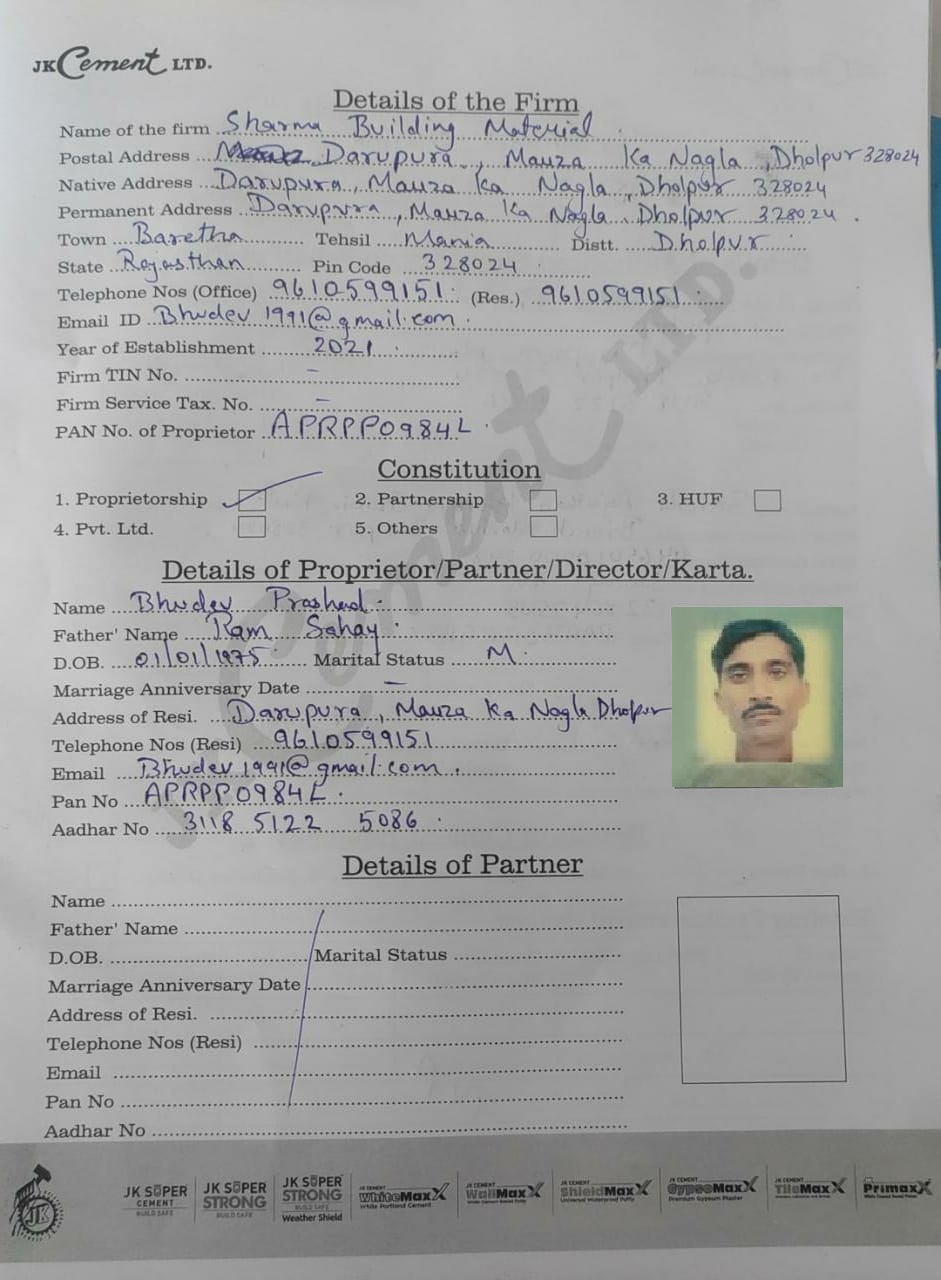 JK Cement LTD.
Details of the Firm
Name of the firm Sharma Building Material
Postal Address Darupura, Mauza Ka Nagla, Dholpur 328024
Native Address Darupura, Mauza Ka Nagla, Dholpur 328024
Permanent Address Darupura, Mauza Ka Nagla, Dholpur 328024.
Town Baretha Tehsil Mania Distt. Dholpur
State Rajasthan Pin Code 328024
Telephone Nos (Office) 9610599151 (Res.) 9610599151
Email ID Bhudev1991@gmail.com
Year of Establishment 2021
Firm TIN No. –
Firm Service Tax. No. –
PAN No. of Proprietor APRPP0984L
Constitution
1. Proprietorship 2. Partnership 3. HUF
4. Pvt. Ltd. 5. Others
Details of Proprietor/Partner/Director/Karta.
Name Bhudev Prashad
Father' Name Ram Sahay
D.OB. 01/01/1975 Marital Status M
Marriage Anniversary Date –
Address of Resi. Darupura, Mauza Ka Nagla Dholpur
Telephone Nos (Resi) 9610599151
Email Bhudev1991@gmail.com
Pan No APRPP0984L
Aadhar No 3118 5122 5086
Details of Partner
Name
Father' Name
D.OB. Marital Status
Marriage Anniversary Date
Address of Resi.
Telephone Nos (Resi)
Email
Pan No
Aadhar No
JK SUPER CEMENT BUILD SAFE
JK SUPER STRONG BUILD SAFE
JK SUPER STRONG BUILD SAFE Weather Shield
JK CEMENT WhiteMaxX White Portland Cement
JK CEMENT WallMaxX White Cement Based Putty
JK CEMENT ShieldMaxX Universal Waterproof Putty
JK CEMENT GypsoMaxX Premium Gypsum Plaster
JK CEMENT TileMaxX
JK CEMENT PrimaxX